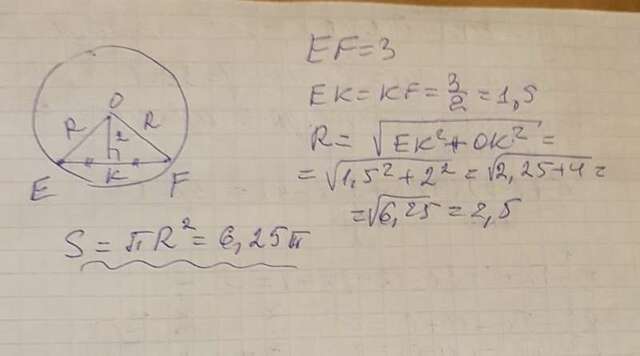 O
R 2 R
K
E F
EF=3
EK=KF=3/2=1,5
R=√EK²+OK²=
=√1,5²+2²=√2,25+4=
=√6,25=2,5
S=πR²=6,25π